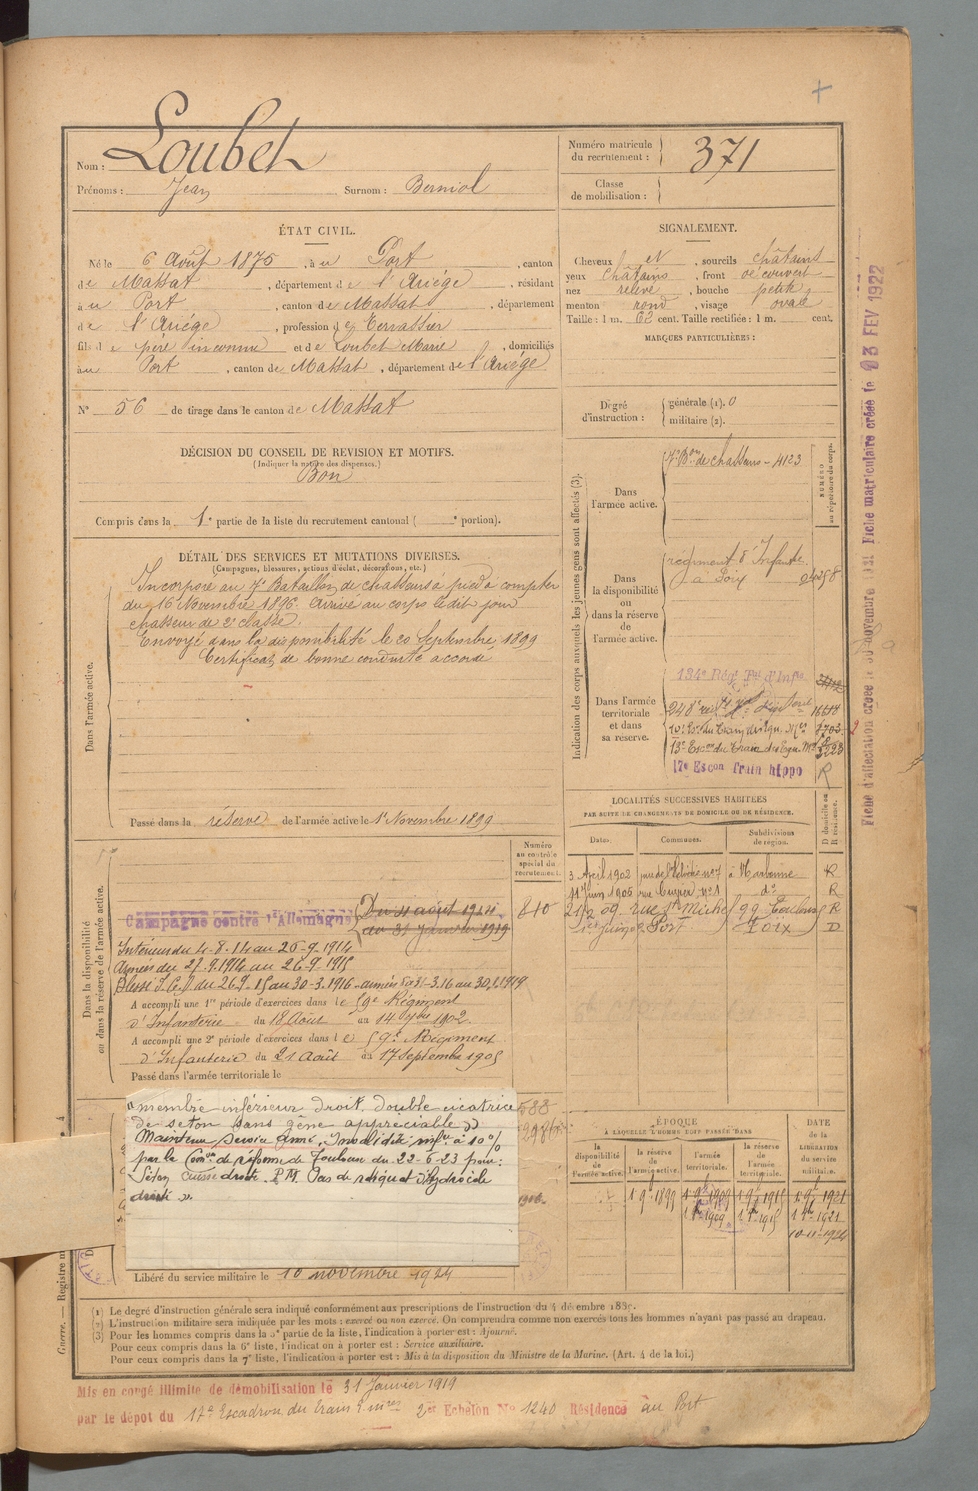 Nom : Loubet
Prénoms : Jean Surnom : Berniol
Numéro matricule du recrutement : 371
Classe de mobilisation :
ÉTAT CIVIL.
Né le 6 Août 1875, à u Port, canton
de Massat, département de l'Ariége, résidant
à u Port, canton de Massat, département
de l'Ariége, profession de Terrassier
fils de père inconnu et de Loubet Marie, domiciliés
à u Port, canton de Massat, département de l'Ariége
N° 56 de tirage dans le canton de Massat
SIGNALEMENT.
Cheveux et, sourcils châtains
yeux châtains, front découvert
nez relevé, bouche petite
menton rond, visage ovale
Taille : 1 m. 62 cent. Taille rectifiée : 1 m. cent.
MARQUES PARTICULIÈRES :
Degré d'instruction : générale (1). 0
militaire (2).
DÉCISION DU CONSEIL DE REVISION ET MOTIFS.
(Indiquer la nature des dispenses.)
Bon
Compris dans la 1e partie de la liste du recrutement cantonal ( e portion).
DÉTAIL DES SERVICES ET MUTATIONS DIVERSES.
(Campagnes, blessures, actions d'éclat, décorations, etc.)
Dans l'armée active.
Incorporé au 7e Bataillon de chasseurs à pied à compter
du 16 Novembre 1896. Arrivé au corps le dit jour
chasseur de 2e classe.
Envoyé dans la disponibilité le 20 Septembre 1899
Certificat de bonne conduite accordé
Passé dans la réserve de l'armée active le 1er Novembre 1899
Indication des corps auxquels les jeunes gens sont affectés (3).
NUMÉRO au répertoire du corps.
Dans l'armée active.
7e Bon de chasseurs - 4123
Dans la disponibilité ou dans la réserve de l'armée active.
régiment d'Infanterie
à Foix
Dans l'armée territoriale et dans sa réserve.
134e Régt Tal d'Infie
17e Escon Train hippo R
LOCALITÉS SUCCESSIVES HABITÉES
PAR SUITE DE CHANGEMENTS DE DOMICILE OU DE RÉSIDENCE.
Dates. Communes. Subdivisions de région. D domicile ou R résidence.
3 Avril 1902 à Narbonne R
11 Juin 1906 rue Cuvier n° 1 do R
21/2 09 rue St Michel 99 Toulouse R
Port Foix D
Dans la disponibilité ou dans la réserve de l'armée active.
Numéro au contrôle spécial du recrutement.
840
Campagne contre l'Allemagne Du 4 août 1914
au 31 Janvier 1919
Intérieur du 4-8-14 au 26-9-1914
Armées du 27.9.1914 au 26-9-1915
A accompli une 1re période d'exercices dans le 59e Régiment
d'Infanterie du 18 Août au 14 7bre 1902.
A accompli une 2e période d'exercices dans le 59e Régiment
d'Infanterie du 21 Août au 17 Septembre 1905
Passé dans l'armée territoriale le
membre inférieur droit. double cicatrice
de séton sans gêne appréciable
Maintenu service armé, Invalidité infre à 10%
par la Con de réforme de Toulouse du 22-6-23 pour :
Séton cuisse droite. P.M. Pas de reliquat d'hydrocèle
droite ».
Libéré du service militaire le 10 novembre 1924
ÉPOQUE
À LAQUELLE L'HOMME DOIT PASSER DANS
la disponibilité de l'armée active. la réserve de l'armée active. l'armée territoriale. la réserve de l'armée territoriale. DATE de la LIBÉRATION du service militaire.
1 9bre 1899 1 9bre 1909 1 9bre 1915 1 9bre 1921
1 1909 1 1915 1 1921
10-11-1924
(1) Le degré d'instruction générale sera indiqué conformément aux prescriptions de l'instruction du 4 décembre 1889.
(2) L'instruction militaire sera indiquée par les mots : exercé ou non exercé. On comprendra comme non exercés tous les hommes n'ayant pas passé au drapeau.
(3) Pour les hommes compris dans la 5e partie de la liste, l'indication à porter est : Ajourné.
Pour ceux compris dans la 6e liste, l'indication à porter est : Service auxiliaire.
Pour ceux compris dans la 7e liste, l'indication à porter est : Mis à la disposition du Ministre de la Marine. (Art. 4 de la loi.)
Mis en congé illimité de démobilisation le 31 Janvier 1919
par le dépôt du 17e Escadron du train 2e Echelon N° 1240 Résidence au Port
Fiche matriculaire créée le 23 FEV 1922
Guerre. — Registre m